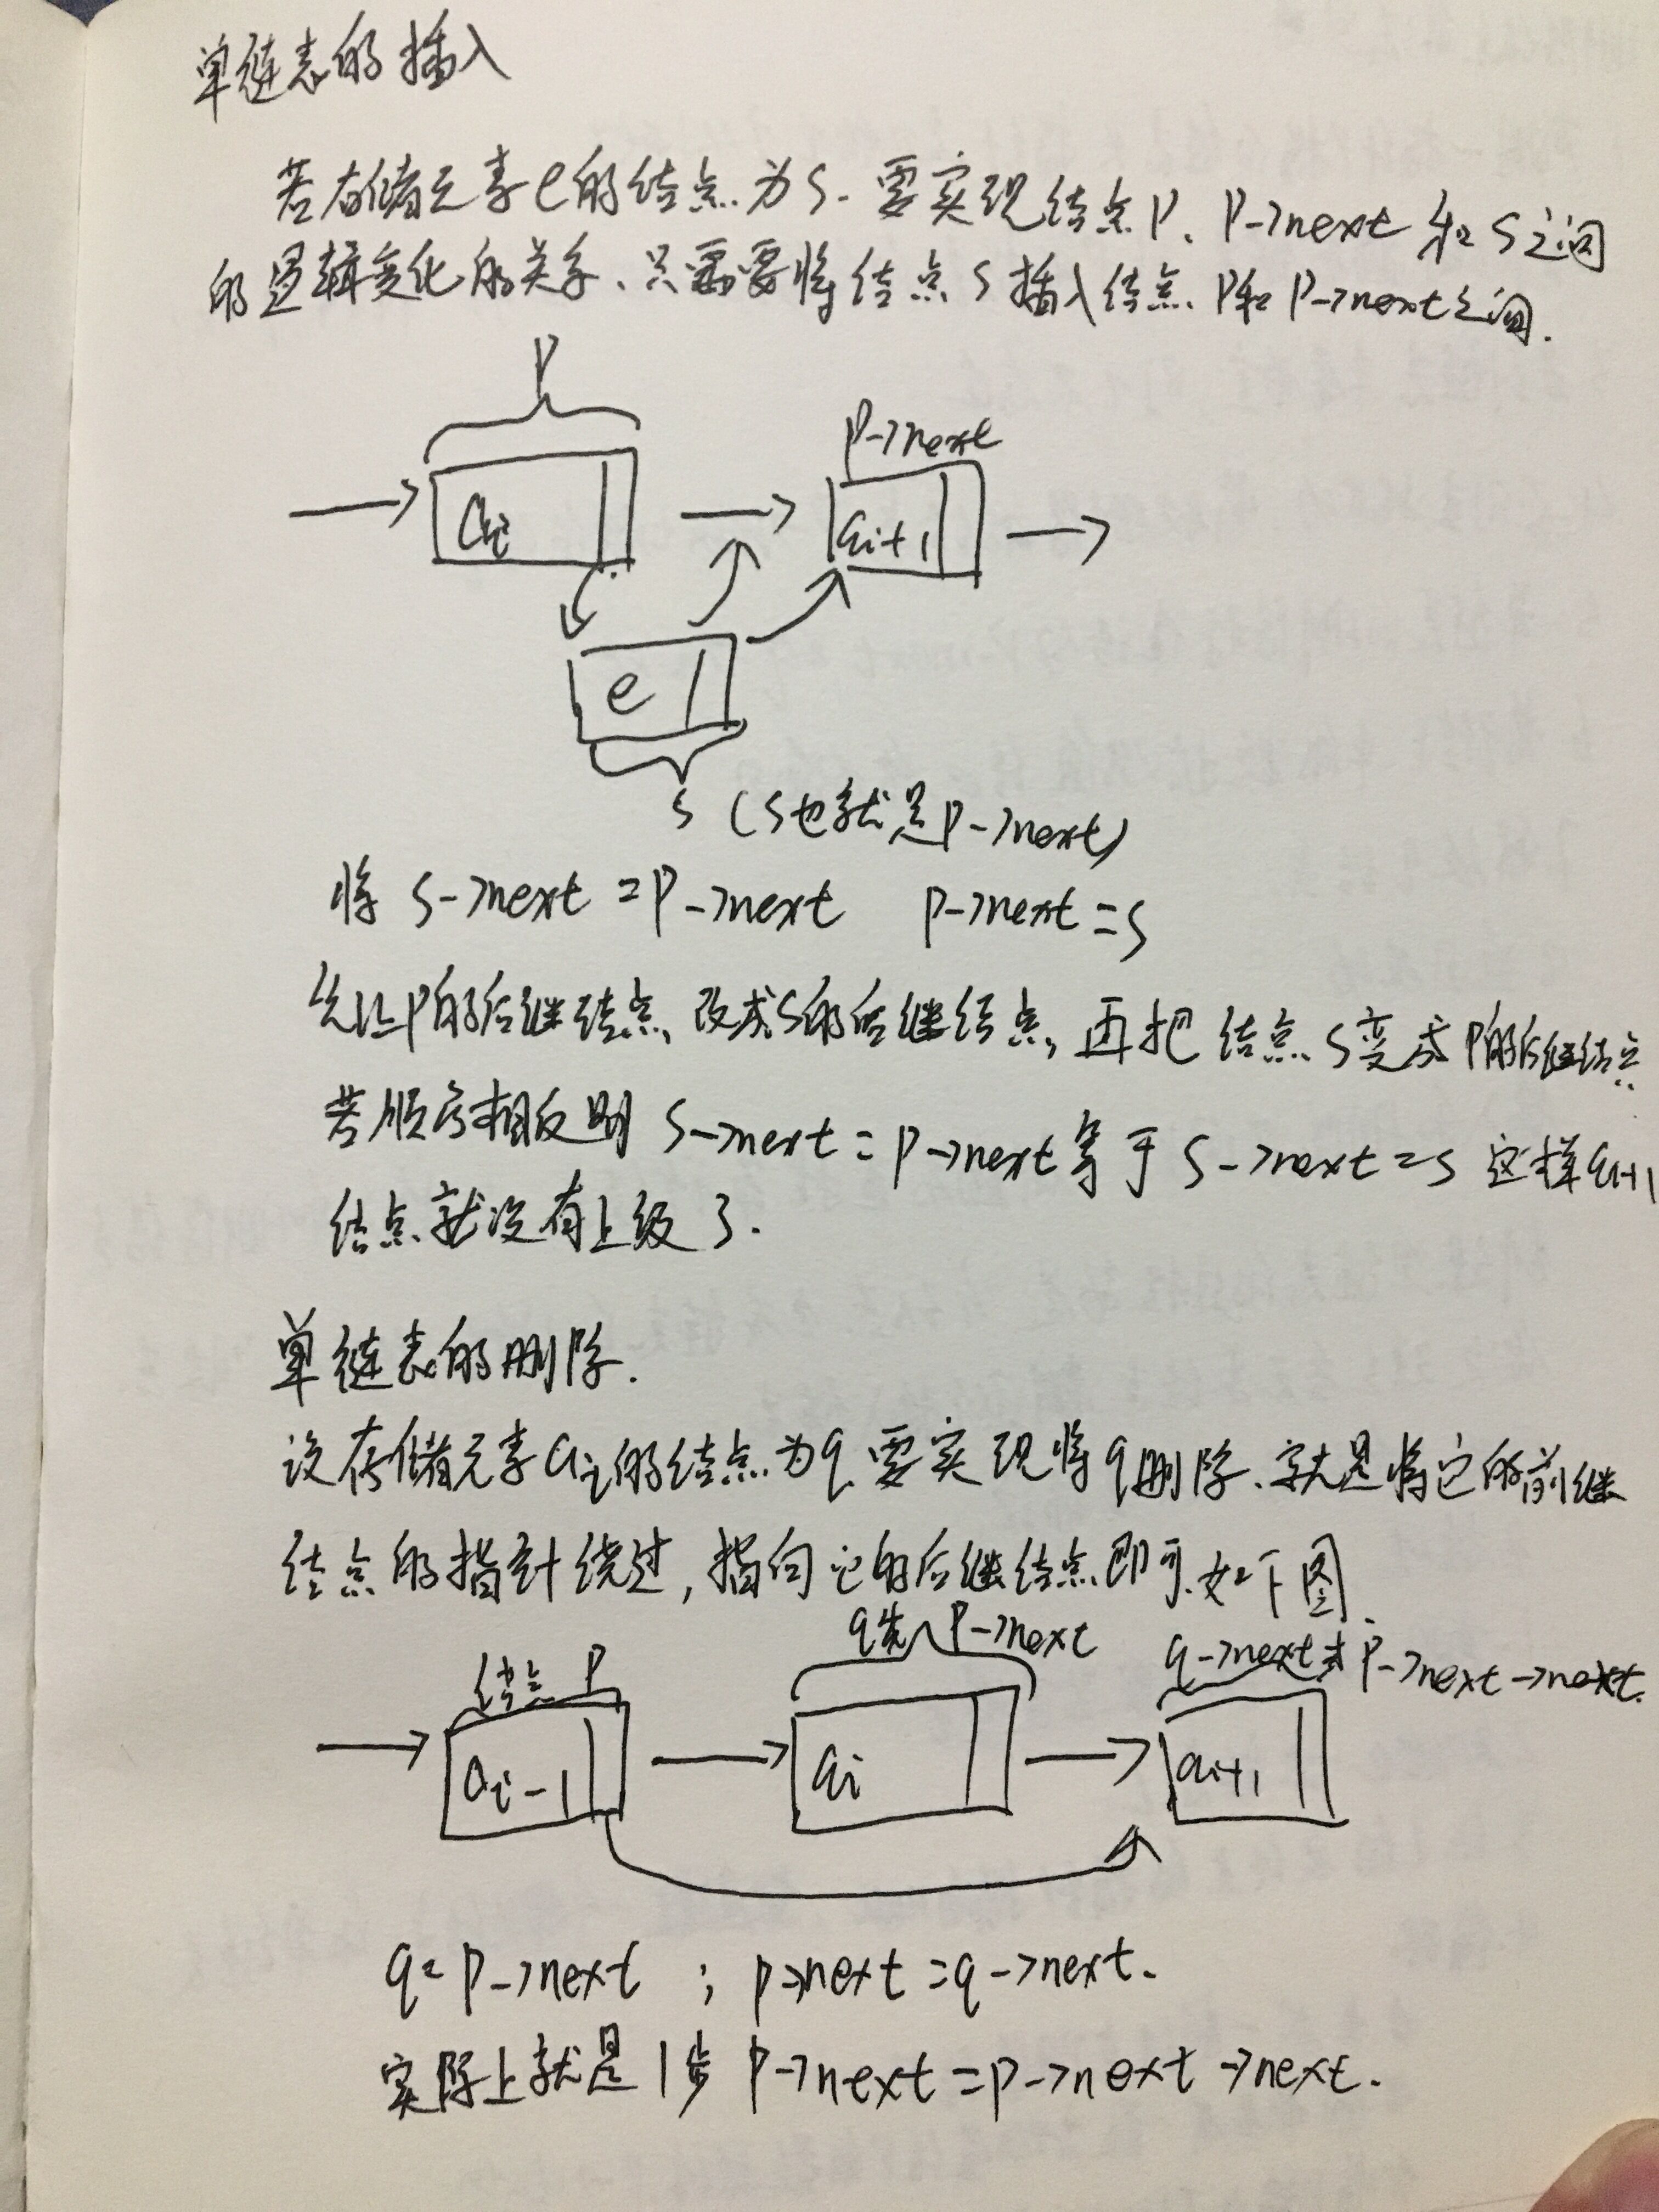 单链表的插入
若存储元素e的结点为s.要实现结点P、P->next和s之间
的逻辑变化的关系、只需要将结点s插入结点P和P->next之间.
P
P->next
ai
ai+1
e
s (s也就是P->next)
将 s->next=P->next P->next=s
先让P的后继结点改成s的后继结点,再把结点s变成P的后继结点
若顺序相反则 s->next=P->next等于s->next=s 这样ai+1
结点就没有上级了.
单链表的删除.
设存储元素ai的结点为q要实现将q删除.就是将它的前继
结点的指针绕过,指向它的后继结点即可.如下图.
结点P
q先 P->next
q->next P->next->next.
ai-1
ai
ai+1
q=P->next ; p->next=q->next.
实际上就是1步 P->next=p->next->next.